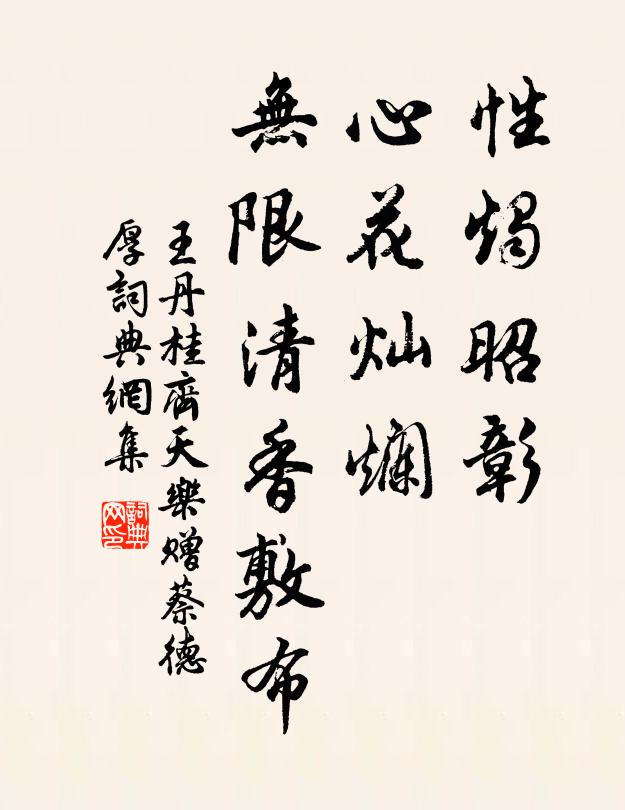 性燭昭彰
心花灿爛
無限清香敷布
王丹桂齊天樂赠蔡德
厚詞典網集
詞典
网印